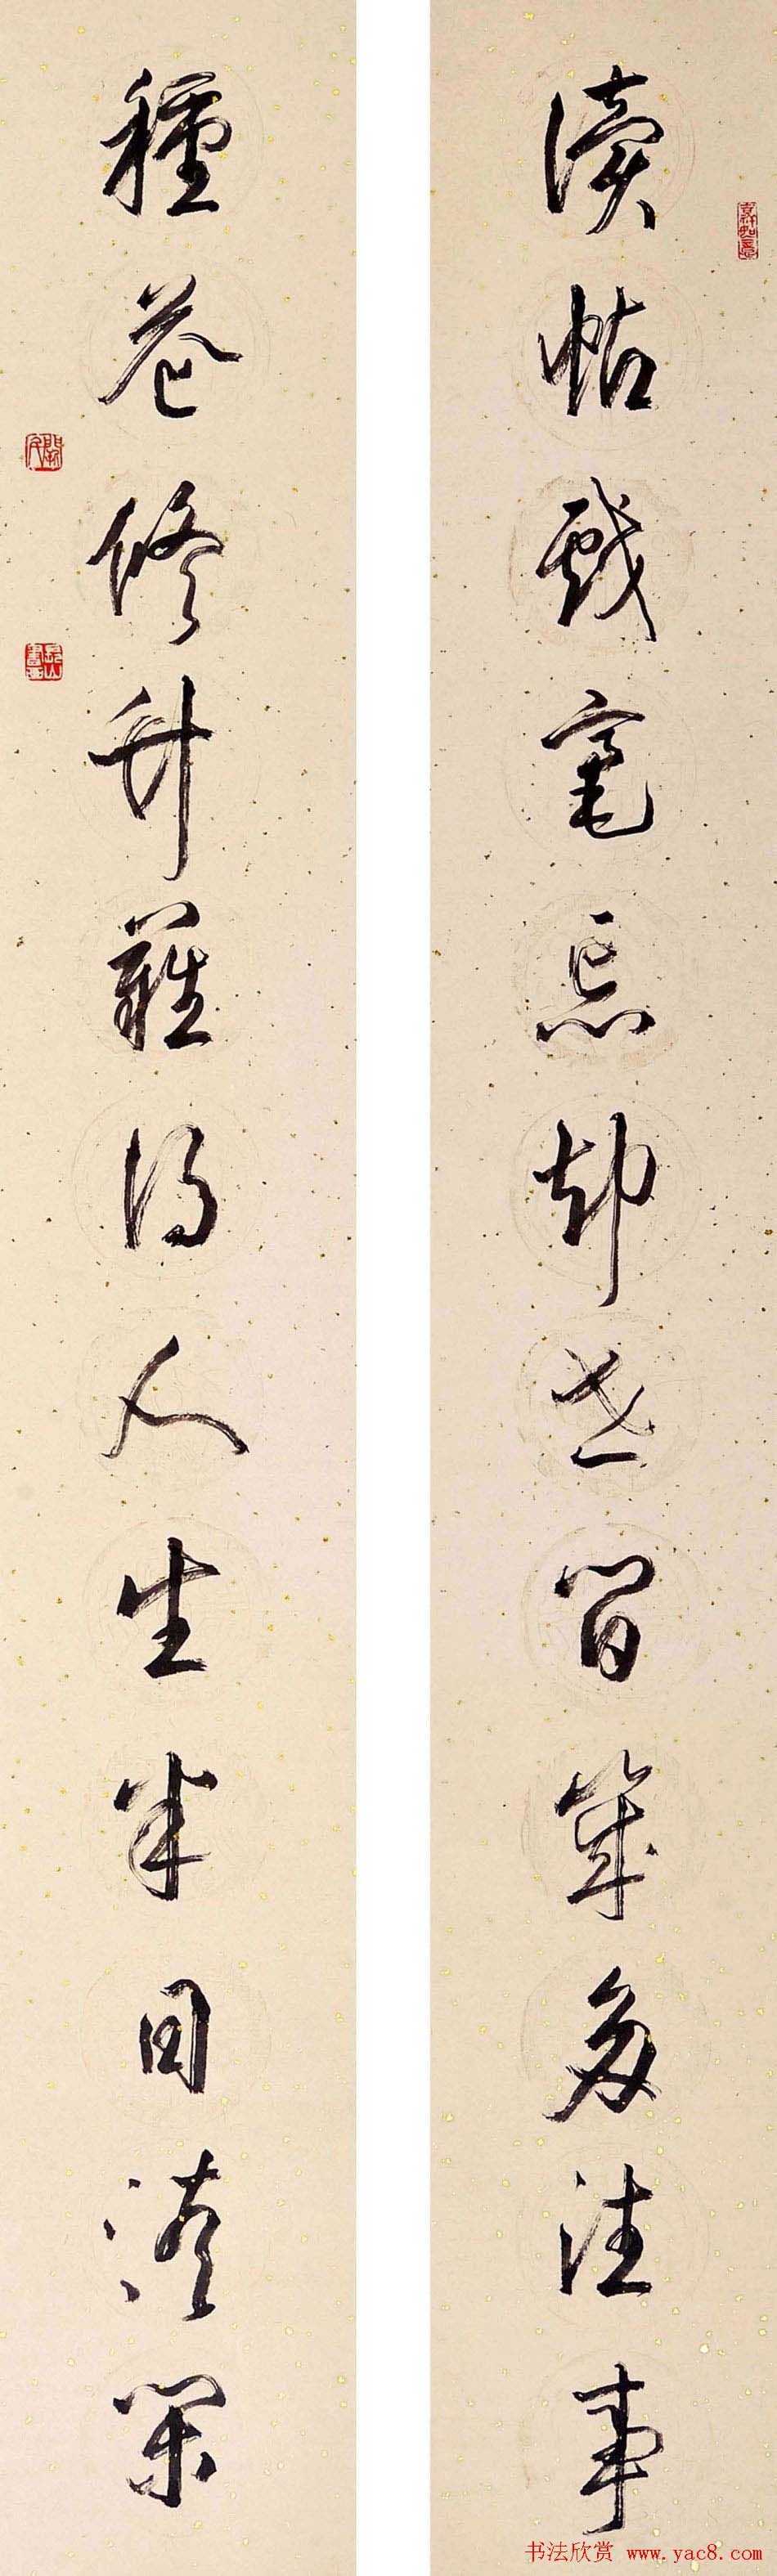 讀帖戲毫忘却世間幾多往事
種花修竹難得人生半日清閑
书法欣赏 www.yac8.com